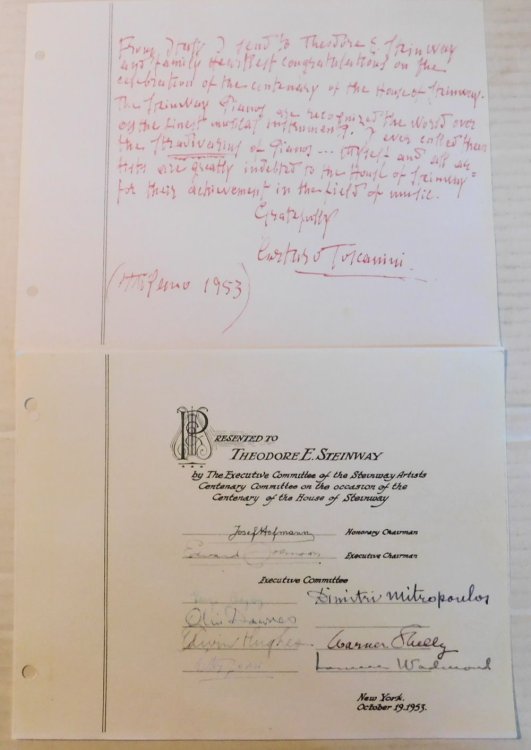 From Italy I send to Theodore E. Steinway
and family heartfelt congratulations on the
celebration of the centenary of the House of Steinway.
The Steinway Pianos are recognized the world over
as the finest musical instruments. I ever called them
the Stradivarius of Pianos --- Myself and all ar=
tists are greatly indebted to the House of Steinway=
for their achievement in the field of music.
Gratefully
Arturo Toscanini
1953)
PRESENTED TO
THEODORE E. STEINWAY
by The Executive Committee of the Steinway Artists
Centenary Committee on the occasion of the
Centenary of the House of Steinway
Josef Hofmann Honorary Chairman
Edward Johnson Executive Chairman
Executive Committee
Dimitri Mitropoulos
Olin Downes
Edwin Hughes
New York.
October 19. 1953.